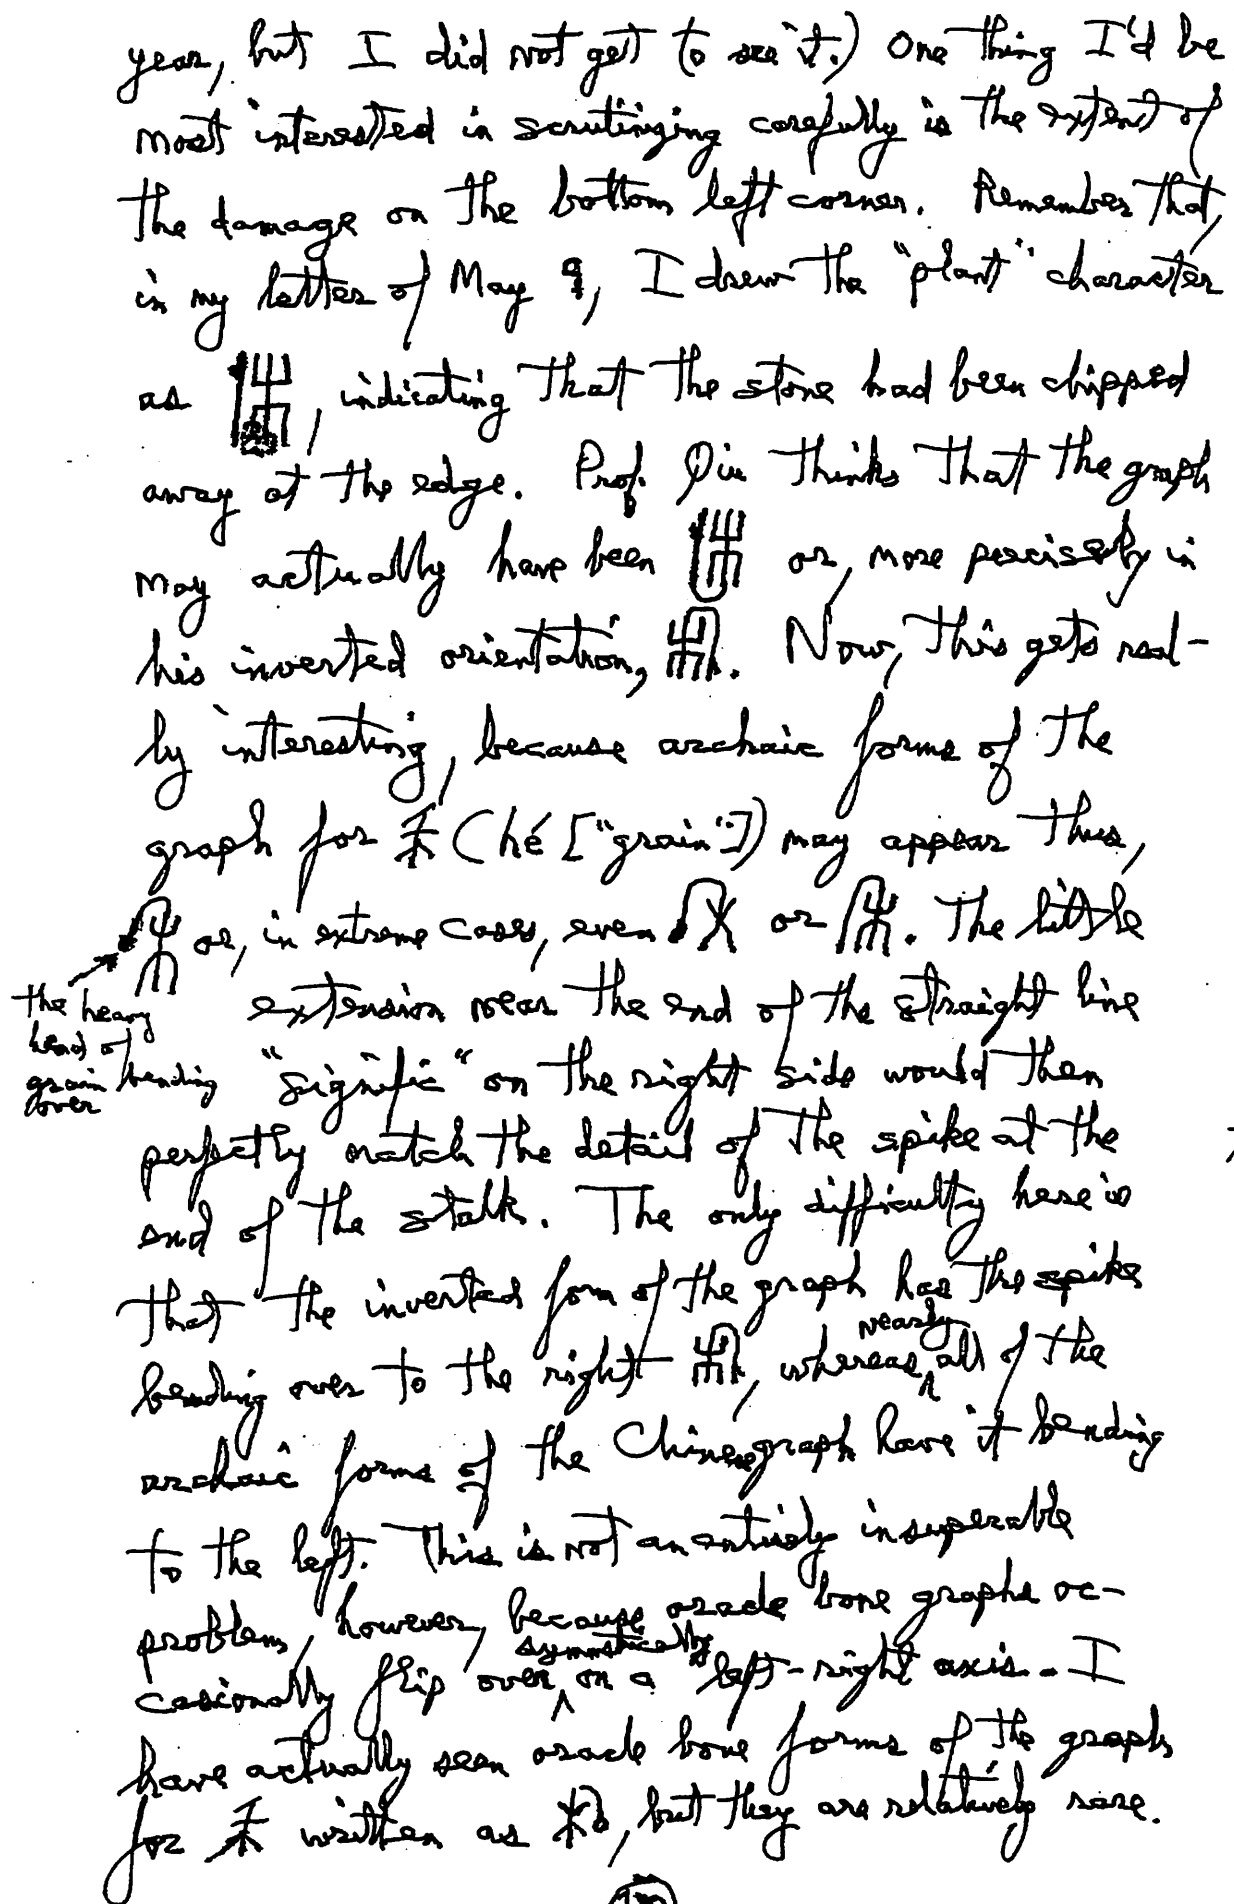 year, but I did not get to see it.) One thing I'd be
most interested in scrutinizing carefully is the extent of
the damage on the bottom left corner. Remember that,
in my letter of May 9, I drew the "plant" character
as , indicating that the stone had been chipped
away at the edge. Prof. Qiu thinks that the graph
may actually have been or, more precisely in
his inverted orientation, . Now, this gets real-
ly interesting, because archaic forms of the
graph for 禾 (hé ["grain"]) may appear thus,
or, in extreme cases, even or . The little
the heavy
head of
grain bending
over
extension near the end of the straight line
"signific" on the right side would then
perfectly match the detail of the spike at the
end of the stalk. The only difficulty here is
that the inverted form of the graph has the spike
bending over to the right , whereas nearly all of the
archaic forms of the Chinese graph have it bending
to the left. This is not an entirely insuperable
problem, however, because oracle bone graphs oc-
casionally flip over symmetrically on a left-right axis. I
have actually seen oracle bone forms of the graph
for 禾 written as , but they are relatively rare.